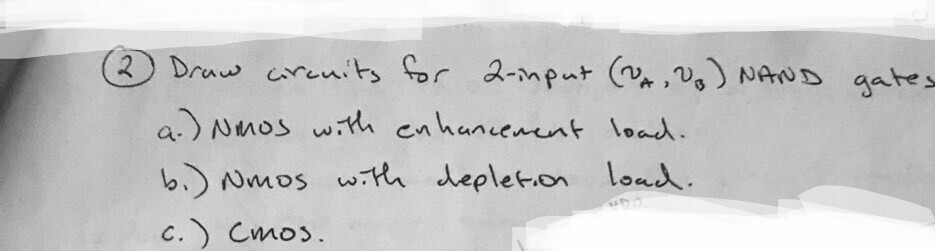 ② Draw circuits for 2-input (v_A, v_B) NAND gates
a.) NMOS with enhancement load.
b.) NMOS with depletion load.
c.) CMOS.